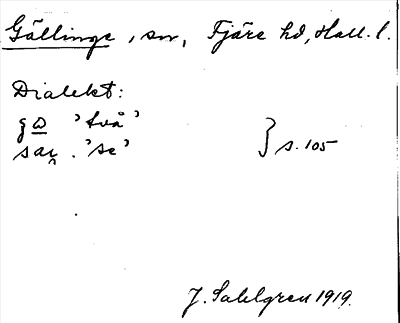 Gällinge, sn, Fjäre hd, Hall. l.
Dialekt:
'två'
} s. 105
'se'
J. Sahlgren 1919.